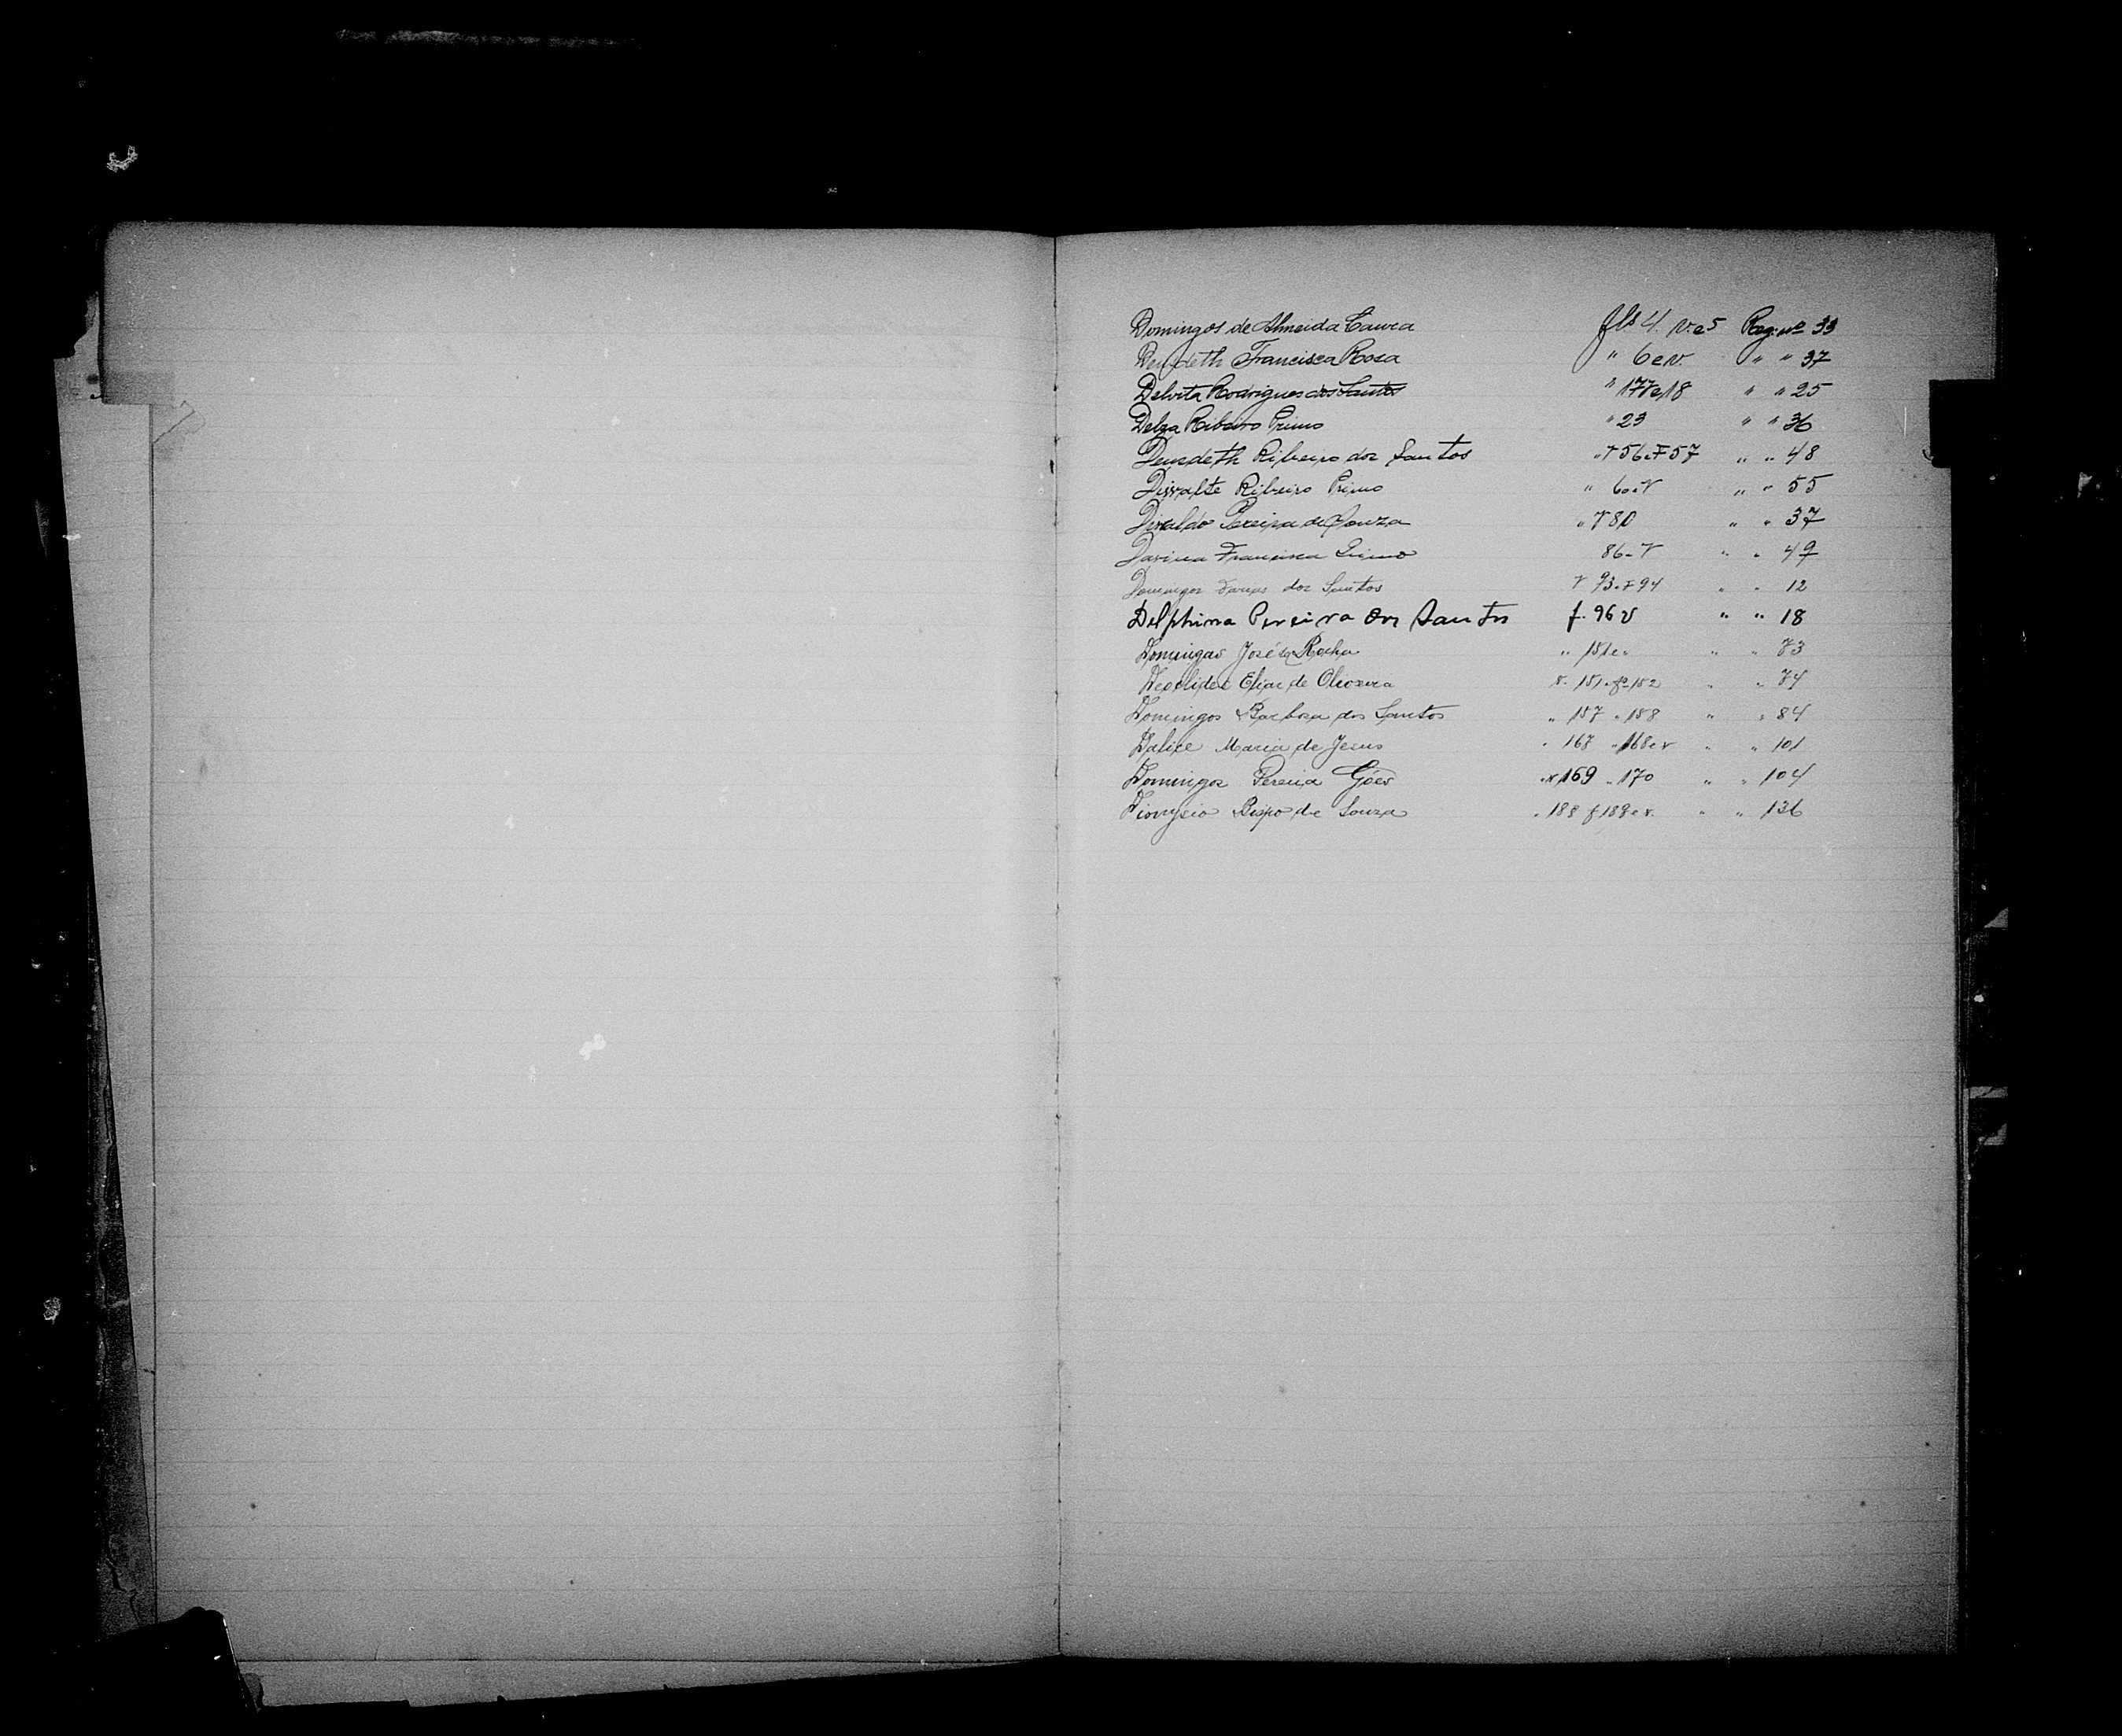 Domingos de Almeida Laura fls 4. v. e 5 Reg. nº 33
Francisca Rosa " 6 e v. " " 37
Delvita Rodrigues dos Santos " 17 v e 18 " " 25
Delza Ribeiro Primo " 23 " " 36
Deusdeth Ribeiro dos Santos " V 56 e F 57 " " 48
Ribeiro Primo " 60 e V " " 55
Divaldo Pereira de Souza " V 80 " " 37
Davina Francisca Primo 86 - V " " 49
Domingos dos Santos V 93 e F 94 " " 12
Delphina Pereira dos Santos f. 96 v " " 18
Domingas José da Rocha " 151 e " " " 73
Deoclides Elias de Oliveira v. 151 e fª 152 " " 74
Domingos Barbosa dos Santos " 157 " 158 " " 84
Dalice Maria de Jesus " 167 " 168 e v " " 101
Domingos Pereira Góes " v 169 " 170 " " 104
Dionysio Bispo de Souza " 188 f 189 e v. " " 136